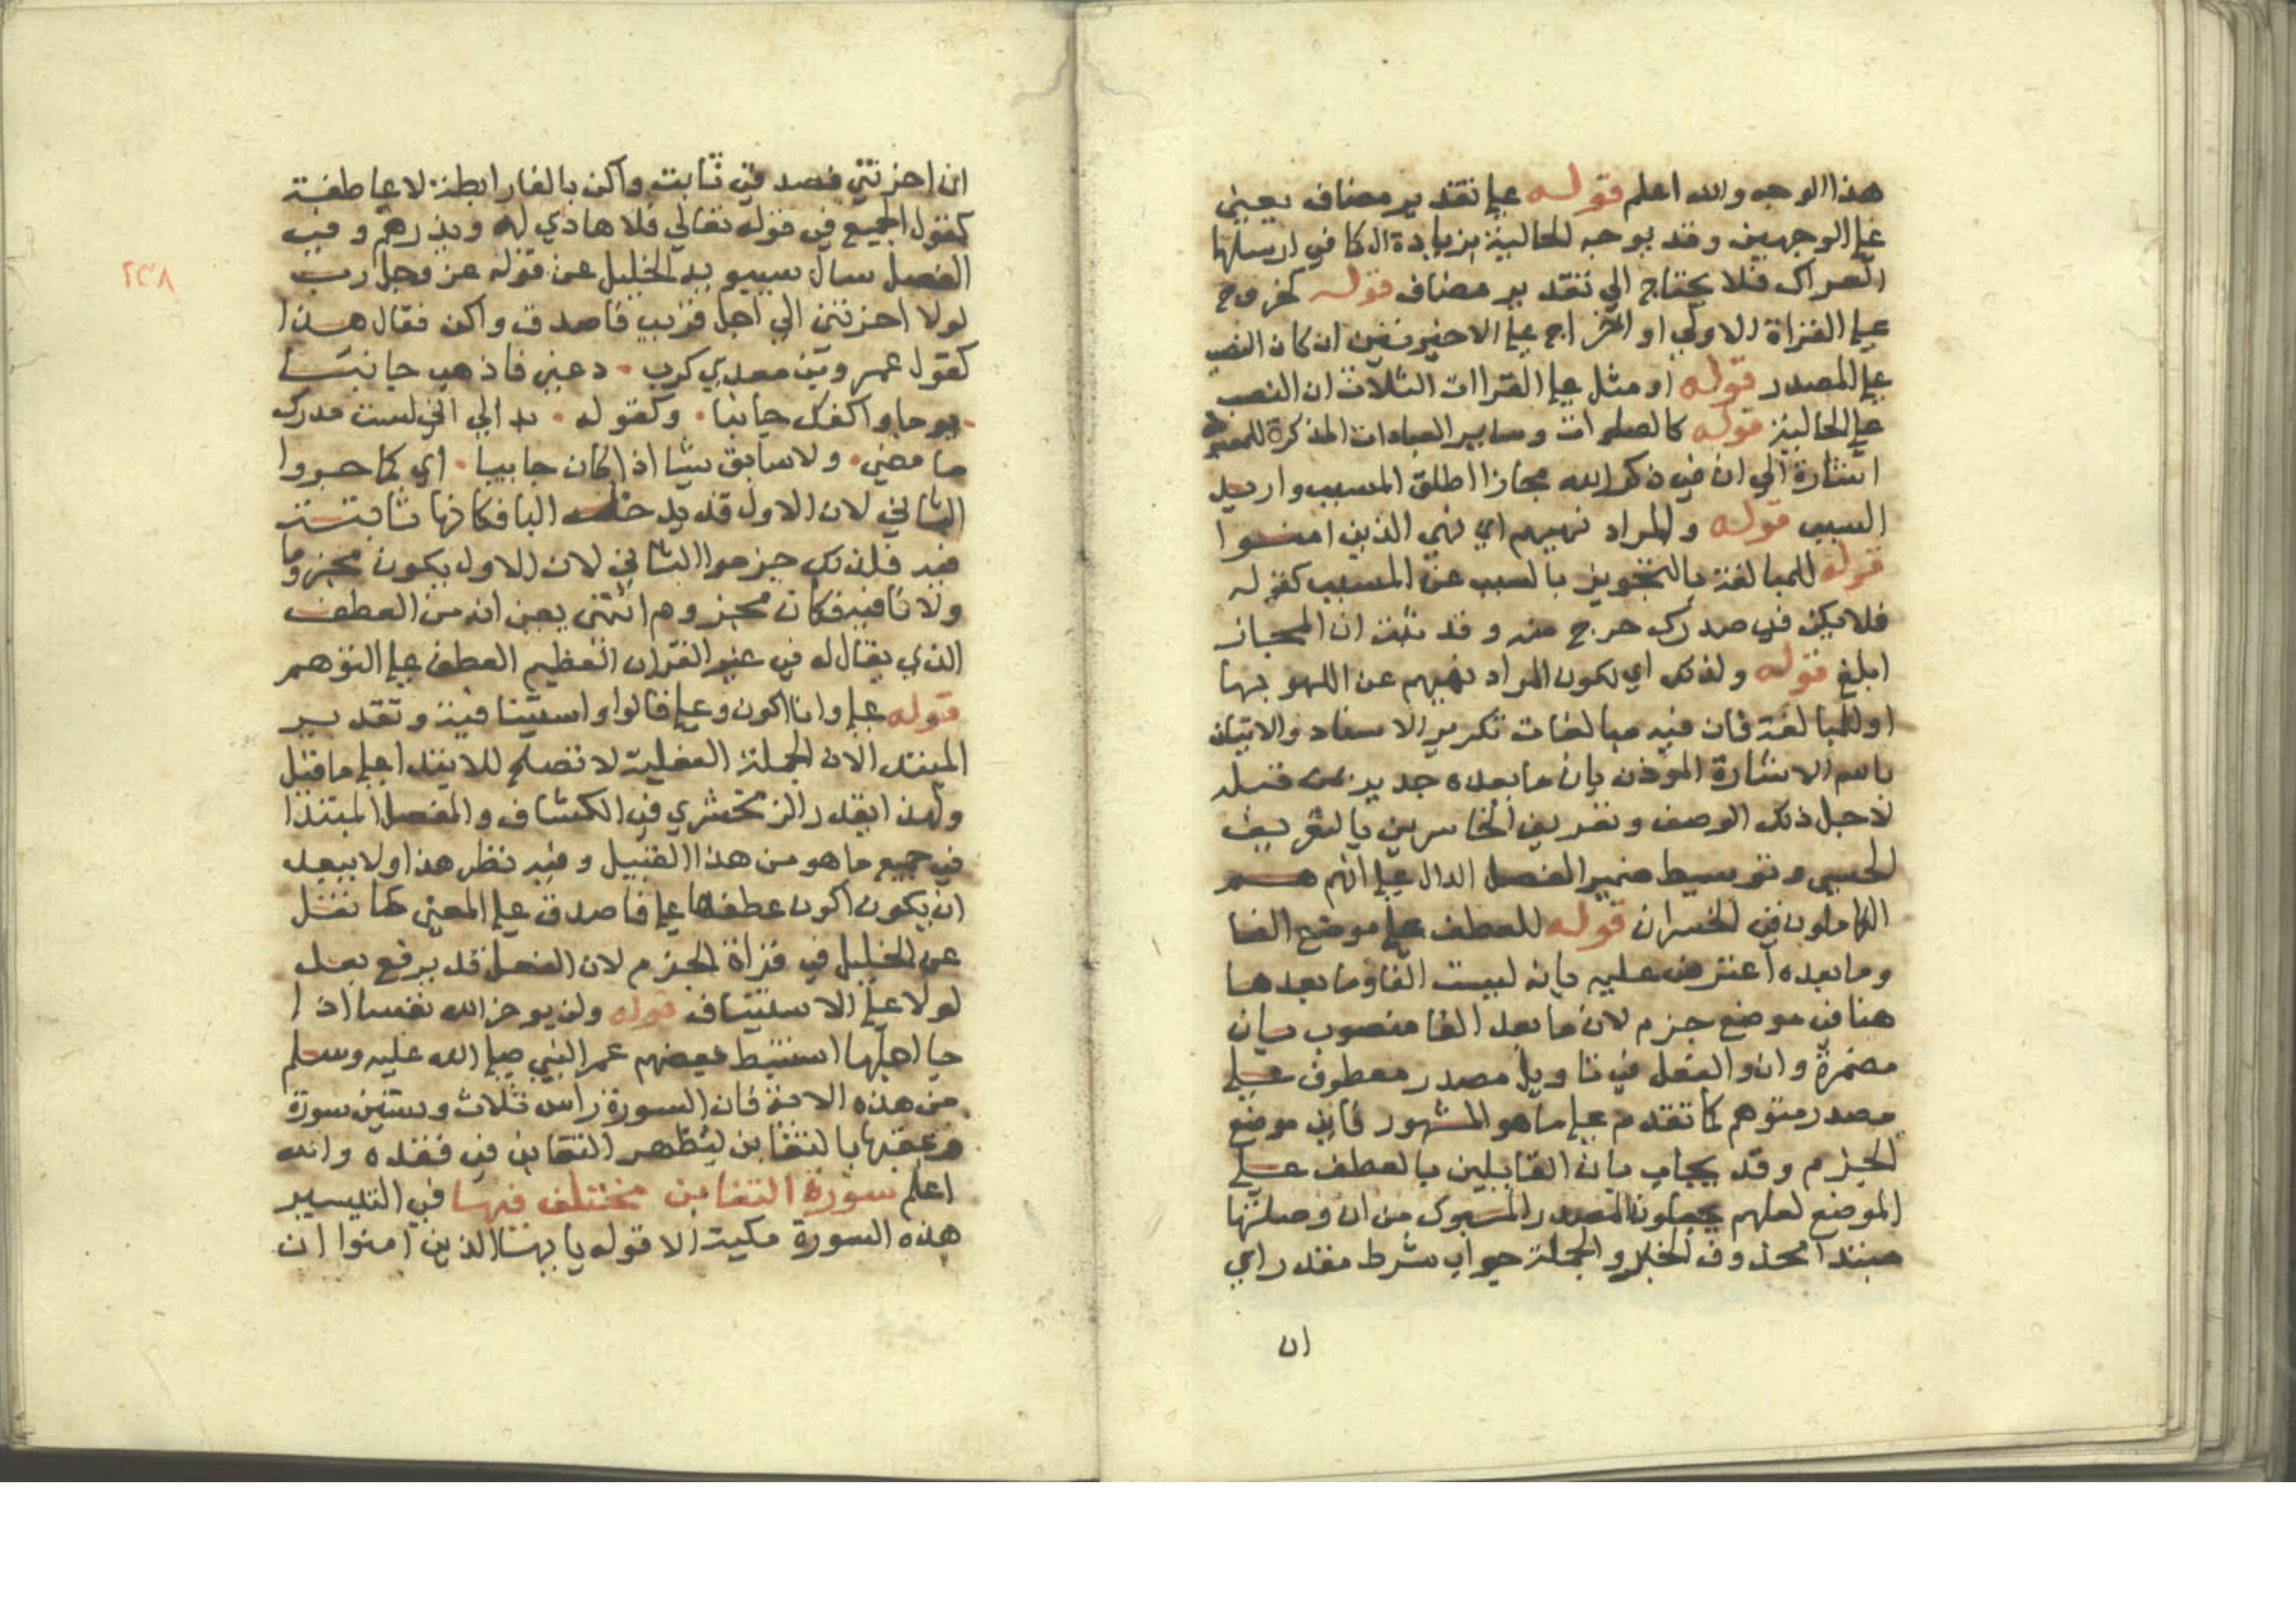 هذا الوجه والله اعلم قوله علي تقدير مضاف يعني
علي الوجهين وقد يوجه الحالية بزيادة ال كما في ارسلها
العراك فلا يحتاج الي تقدير مضاف قوله كخروج
علي القراة الاولي او اخراج علي الاخيرتين ان كان النصب
علي المصدر قوله او مثل علي القراات الثلاث ان النصب
علي الحالية قوله كالصلوات وساير العبادات المذكرة للمعبود
اشارة الي ان في ذكر الله مجازا اطلق المسبب واريد
السبب قوله والمراد نهيهم اي نهي الذين امنوا
قوله للمبالغة بالتجويز بالسبب عن المسبب كقوله
فلا يكن في صدرك حرج منه وقد ثبت ان المجاز
ابلغ قوله ولذلك اي لكون المراد نهيهم عن اللهو بها
او للمبالغة فان فيه مبالغات تكرير الاسناد والاتيان
باسم الاشارة الموذن بان ما بعده جدير بمن قبله
لاجل ذلك الوصف وتعريف الخاسرين بالتعريف
الجنسي وتوسيط ضمير الفصل الدال علي انهم هم
الكاملون في الخسران قوله للعطف علي موضع الفا
وما بعده اعترض عليه بانه ليست الفا وما بعدها
هنا في موضع جزم لان ما بعد الفا منصوب بان
مضمرة وان والفعل في تاويل مصدر معطوف علي
مصدر متوهم كما تقدم علي ما هو المشهور فاين موضع
الجزم وقد يجاب بان القايلين بالعطف علي
الموضع لعلهم يجعلون المصدر المسبوك من ان وصلتها
مبتدا محذوف الخبر والجملة جواب شرط مقدر اي
ان
ان اخرتني فتصدقي ثابت واكن بالفا رابطة لا عاطفة
كقول الجميع في قوله تعالي فلا هادي له ويذرهم وفي
الفصل سال سيبويه الخليل عن قوله عز وجل رب
لولا اخرتني الي اجل قريب فاصدق واكن فقال هذا
كقول عمرو بن معدي كرب دعني فاذهب جانبا
يوما واكفك جانبا وكقوله بدا لي اني لست مدرك
ما مضي ولا سابق شيا اذا كان جاييا اي كما جروا
الثاني لان الاول قد يدخله البا فكانها ثابتة
فيه فلذلك جزموا الثاني لان الاول يكون مجزوما
ولا فا فيه فكانه مجزوم انتهي يعني انه من العطف
الذي يقال له في غير القران العظيم العطف علي التوهم
قوله علي وانا اكون وعلي فالواو استينافية وتقدير
المبتدا لان الجملة الفعلية لا تصلح للابتدا علي ما قيل
ولهذا يقدر الزمخشري في الكشاف والمفصل المبتدا
في جميع ما هو من هذا القبيل وفيه نظر هذا ولا يبعد
ان يكون اكون عطفها علي فاصدق علي المعني كما نقل
عن الخليل في قراة الجزم لان الفعل قد يرفع بعد
لولا علي الاستيناف قوله ولن يوخر الله نفسا اذا
جا اجلها استنبط بعضهم عمر النبي صلي الله عليه وسلم
من هذه الاية فان السورة راس ثلاث وستين سورة
وعقبها بالتغابن ليظهر التغابن في فقده والله
اعلم سورة التغابن مختلف فيها في التيسير
هذه السورة مكية الا قوله يا ايها الذين امنوا ان
٢٣٨